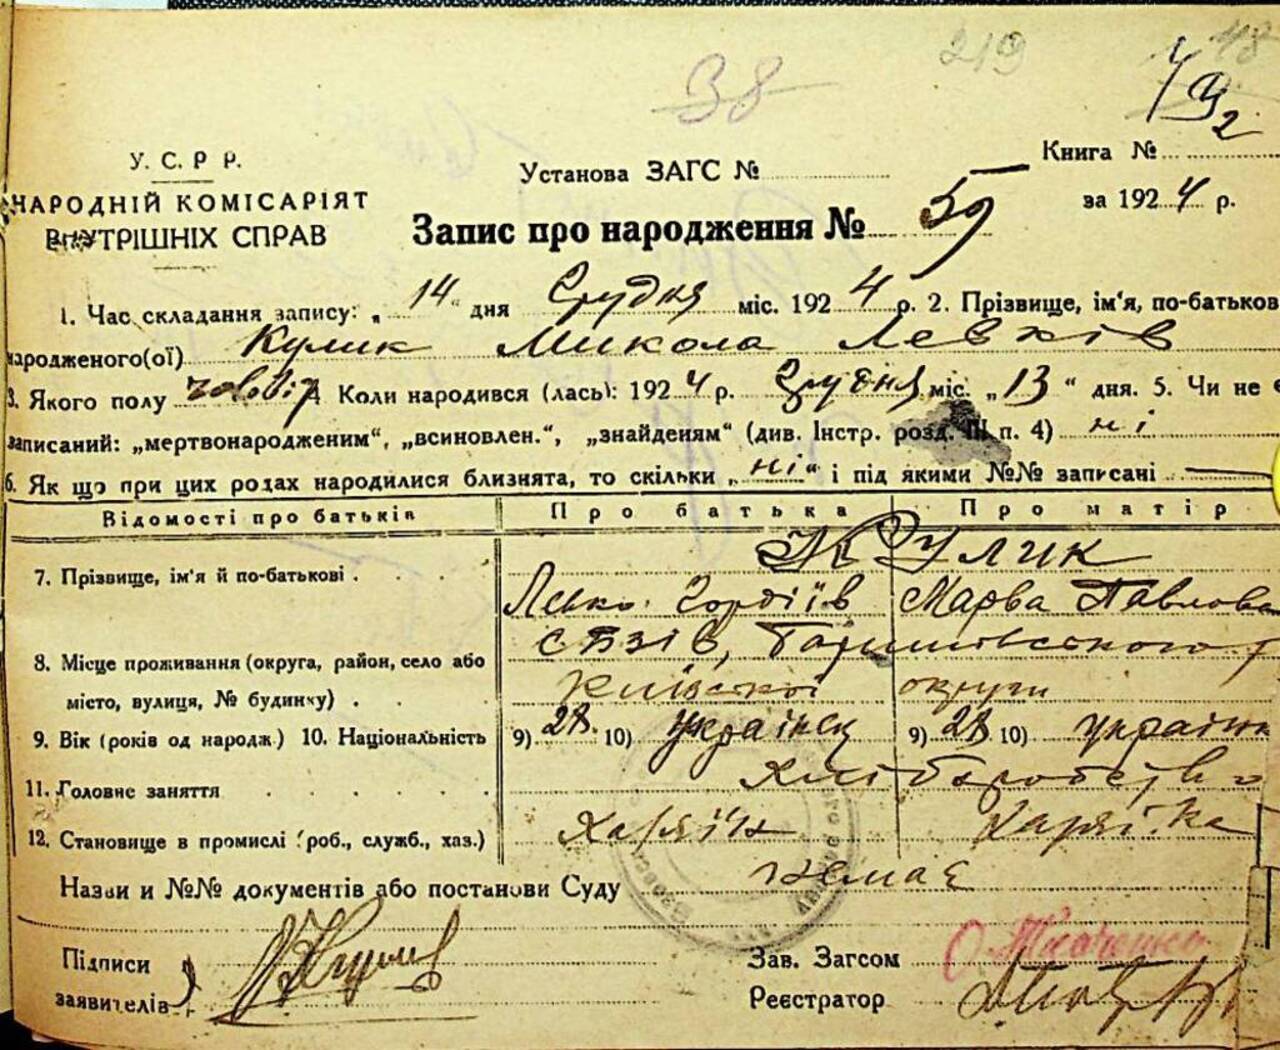 38
219
48
У. С. Р Р.
НАРОДНІЙ КОМІСАРІЯТ
ВНУТРІШНІХ СПРАВ
Установа ЗАГС №
Книга №
за 1924 р.
Запис про народження № 59
1. Час складання запису: „14" дня Грудня міс. 1924 р. 2. Прізвище, ім'я, по-батьков
народженого(ої) Кулик Микола Левків
3. Якого полу чоловіч 4 Коли народився (лась): 1924 р. Грудня міс. „13" дня. 5. Чи не є
записаний: „мертвонародженим", „всиновлен.", „знайденям" (див. Інстр. розд. III п. 4) ні
6. Як що при цих родах народилися близнята, то скільки „ні" і під якими №№ записані
Відомості про батьків Про батька Про матір
7. Прізвище, ім'я й по-батькові Кулик
Левко Гордіїв Марва Павлова
8. Місце проживання (округа, район, село або
місто, вулиця, № будинку)
Баришівського
Київської округи
9. Вік (років од народж.) 10. Національність 9) 28 10) українец 9) 28 10) україн
11. Головне заняття Хліборобство
12. Становище в промислі (роб., служб., хаз.) Хазяїн Хазяйка
Назви и №№ документів або постанови Суду немає
Підписи
заявителів
Зав. Загсом О. Ткаченко
Реєстратор